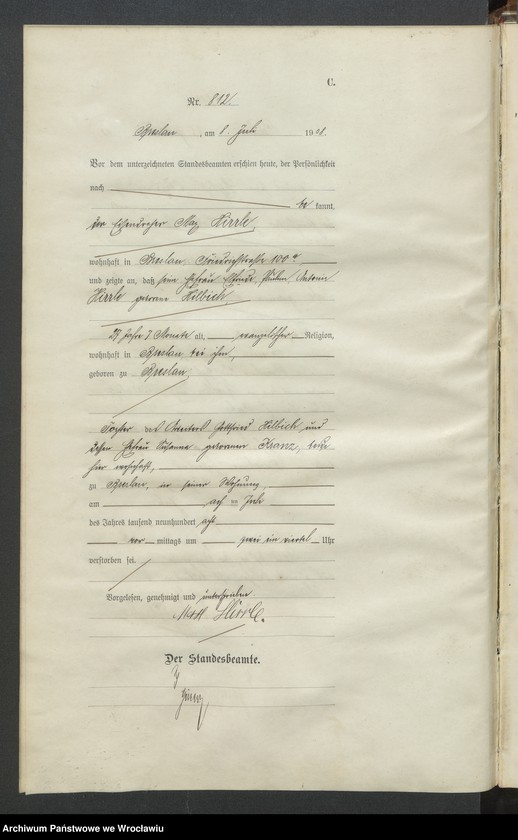 C.
Nr. 812.
Breslau, am 8. Juli 1908.
Vor dem unterzeichneten Standesbeamten erschien heute, der Persönlichkeit
nach
be kannt,
der Eisendreher Max Hirrle,
wohnhaft in Breslau, Friedrichstraße 100
und zeigte an, daß seine Ehefrau Pauline
Hirrle geborene Hilbich,
27 Jahre 7 Monate alt, evangelischer Religion,
wohnhaft in Breslau, bei ihm,
geboren zu Breslau,
Tochter des Gottfried Hilbich und
dessen Ehefrau Susanna geborenen Kranz, beide
hier wohnhaft,
zu Breslau, in seiner Wohnung,
am acht ten Juli
des Jahres tausend neunhundert acht
vor mittags um zwei ein viertel Uhr
verstorben sei.
Vorgelesen, genehmigt und unterschrieben
Max Hirrle.
Der Standesbeamte.
Archiwum Państwowe we Wrocławiu